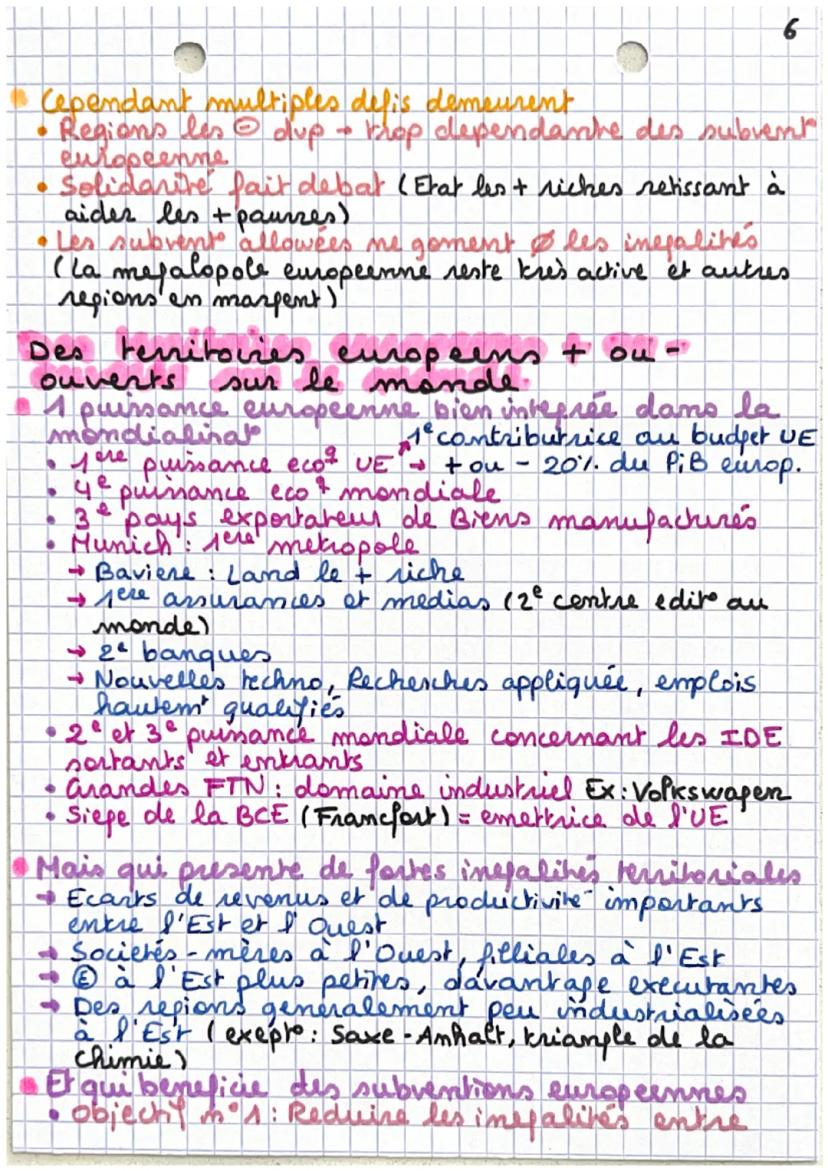 6
Cependant multiples defis demeurent
• Regions les ⊖ dvp → trop dependante des subvent°
europeenne
• Solidarité fait debat (Etat les + riches retissant à
aider les + pauvres)
• Les subvent° allouées ne goment Ø les inegalités
(La megalopole europeenne reste très active et autres
regions en margent)
Des territoires europeens + ou -
ouverts sur le monde
1 puissance europeenne bien integrée dans la
mondialisat°
1e contributrice au budget UE
• 1ere puissance ecoq UE → + ou - 20% du PiB europ.
• 4e puissance ecoq mondiale
• 3e pays exportateur de Biens manufacturés
• Munich : 1ere metropole
→ Baviere : Land le + riche
→ 1ere assurances et medias (2e centre edit° au
monde)
→ 2e banques
→ Nouvelles techno, Recherches appliquée, emplois
hautemt qualifiés
• 2e et 3e puissance mondiale concernant les IDE
sortants et entrants
• Grandes FTN : domaine industriel Ex : Volkswagen
• Siege de la BCE (Francfort) = emettrice de l'UE
Mais qui presente de fortes inegalités territoriales
→ Ecarts de revenus et de productivité importants
entre l'Est et l'Ouest
→ Societés-mères à l'Ouest, filliales à l'Est
→ Ⓔ à l'Est plus petites, davantage executantes
→ Des regions generalement peu industrialisées
à l'Est (exept° : Saxe-Anhalt, triangle de la
chimie)
Et qui beneficie des subventions europeennes
• Objectif n°1 : Reduire les inegalités entre